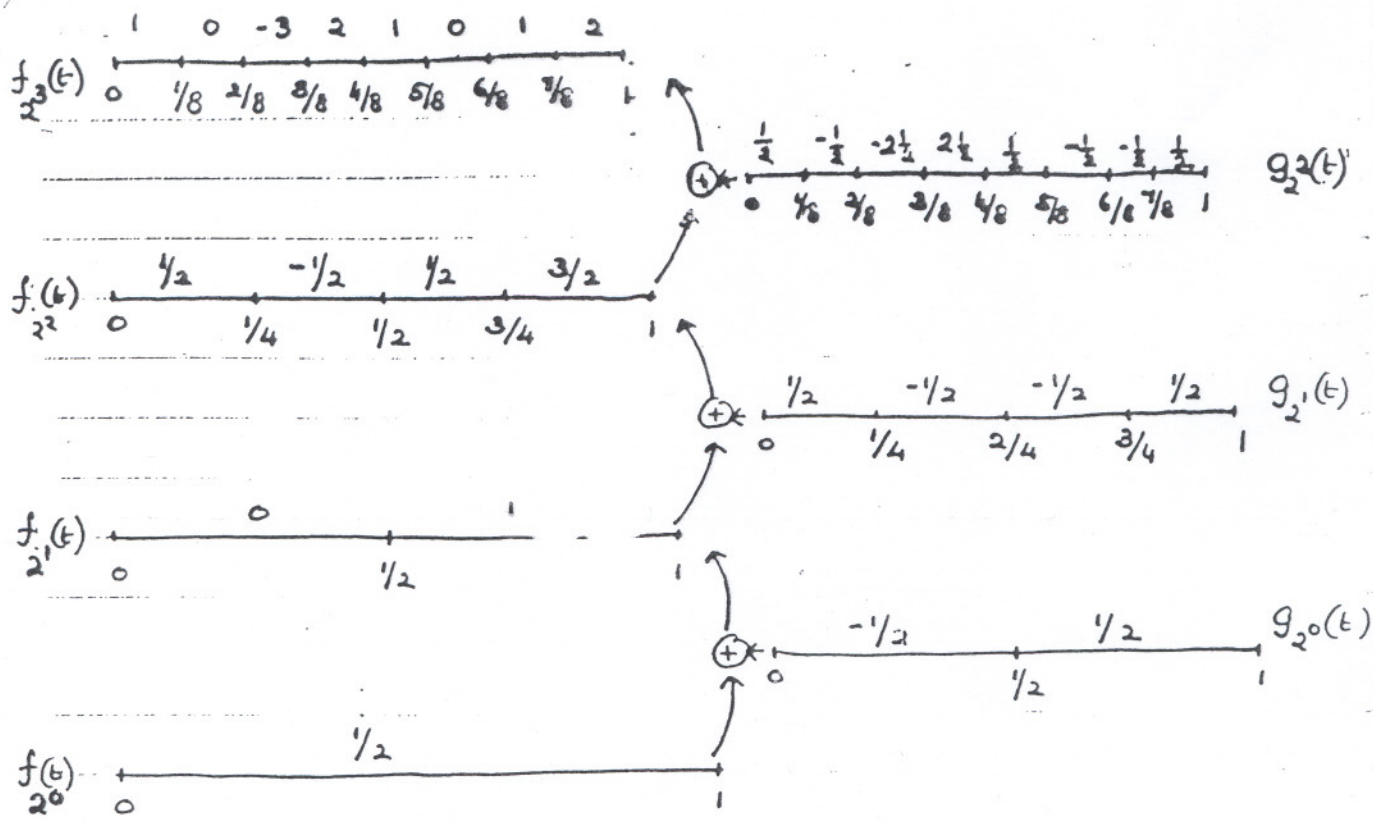 1 0 -3 2 1 0 1 2
f_{2^3}(t) 0 1/8 2/8 3/8 4/8 5/8 6/8 7/8 1
1/2 -1/2 -2 1/2 2 1/2 1/2 -1/2 -1/2 1/2
+ g_{2^2}(t)
0 1/8 2/8 3/8 4/8 5/8 6/8 7/8 1
1/2 -1/2 1/2 3/2
f_{2^2}(t) 0 1/4 1/2 3/4 1
1/2 -1/2 -1/2 1/2 g_{2^1}(t)
+ 0 1/4 2/4 3/4 1
0 1
f_{2^1}(t) 0 1/2 1
-1/2 1/2 g_{2^0}(t)
+ 0 1/2 1
1/2
f_{2^0}(t) 0 1